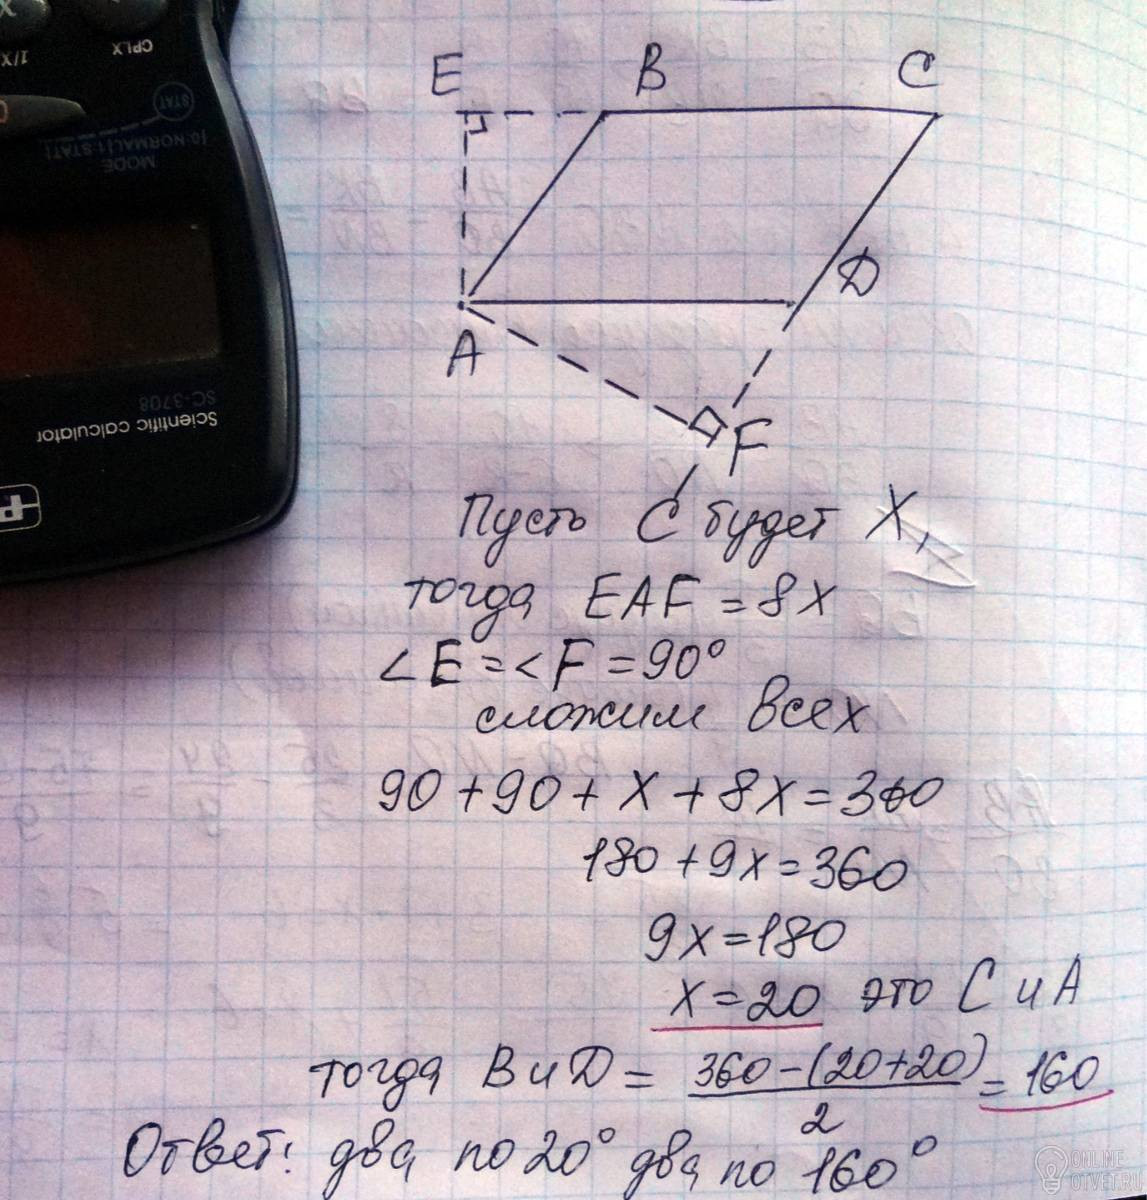 CPLX
1/X
STAT
MODE
[0:NORMAL(1:STAT)]
SC-3708
Scientific calculator
E B C
D
A
F
Пусть C будет X,
тогда EAF = 8x
<E = <F = 90°
сложим всех
90 + 90 + x + 8x = 360
180 + 9x = 360
9x = 180
x = 20 это C и A
тогда B и D = 360 - (20 + 20) / 2 = 160
Ответ: два по 20° два по 160°
ONLINE
OTVET.RU